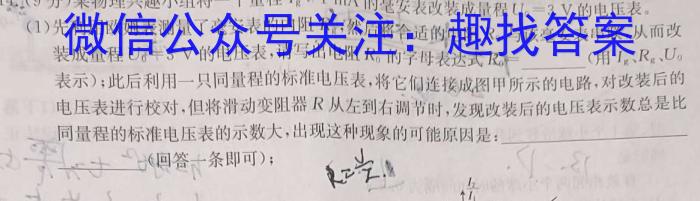 9分)某物理兴趣小组将一个量程 mA的毫安表改装成量程U₀=3 V的电压表。
(1)先 测量了 安表的 阻 合适的 从而改
微信公众号关注:趣找答案
装成量程U₀=3 V的电压表,请写出电阻R₀的字母表达式R₀=________(用I_g、R_g、U₀
表示);此后利用一只同量程的标准电压表,将它们连接成图甲所示的电路,对改装后的
电压表进行校对,但将滑动变阻器R从左到右调节时,发现改装后的电压表示数总是比
同量程的标准电压表的示数大,出现这种现象的可能原因是:________
________(回答一条即可);